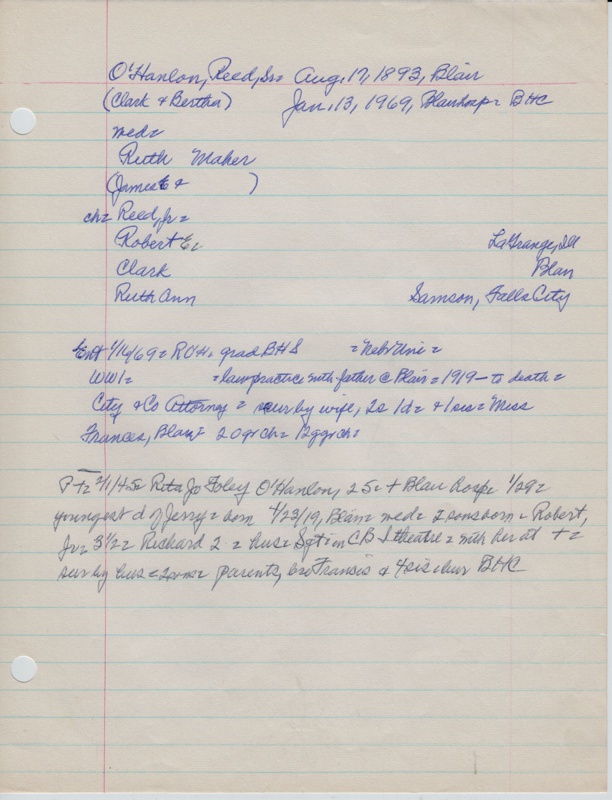 O'Hanlon, Reed, Sr= Aug. 17, 1893, Blair
(Clark + Bertha) Jan. 13, 1969, Blairhosp= BHC
med=
Ruth Maher
(James E + )
ch= Reed, Jr=
Robert E. LaGrange, Ill
Clark Blair
Ruth Ann Samson, Falls City
Ent 1/16/69= ROH= grad BHS =Nebr Uni=
WW1= =law practice with father @ Blair=1919 - to death=
City + Co Attorney = sur by wife, 2s 1d= + 1 sis= Miss
Frances, Blair= 20 grch= 12 ggrch=
P-T= 2/1/45= Rita Jo Foley O'Hanlon, 25= + Blair hosp= 1/29=
youngest d of Jerry= born 4/23/19, Blair= med= 2 sons born= Robert,
Jr= 3 1/2= Richard 2 = hus= Sgt in CBI theatre= with her at +=
sur by hus= 2sons= parents, bro Francis + 4 sis= bur BHC